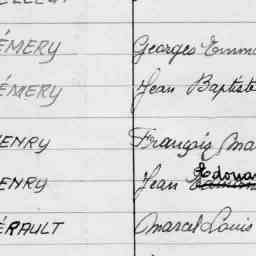 ÉMERY Georges Emm
ÉMERY Jean Baptiste
ENRY François Ma
ENRY Jean Edouar
ÉRAULT Marcel Louis